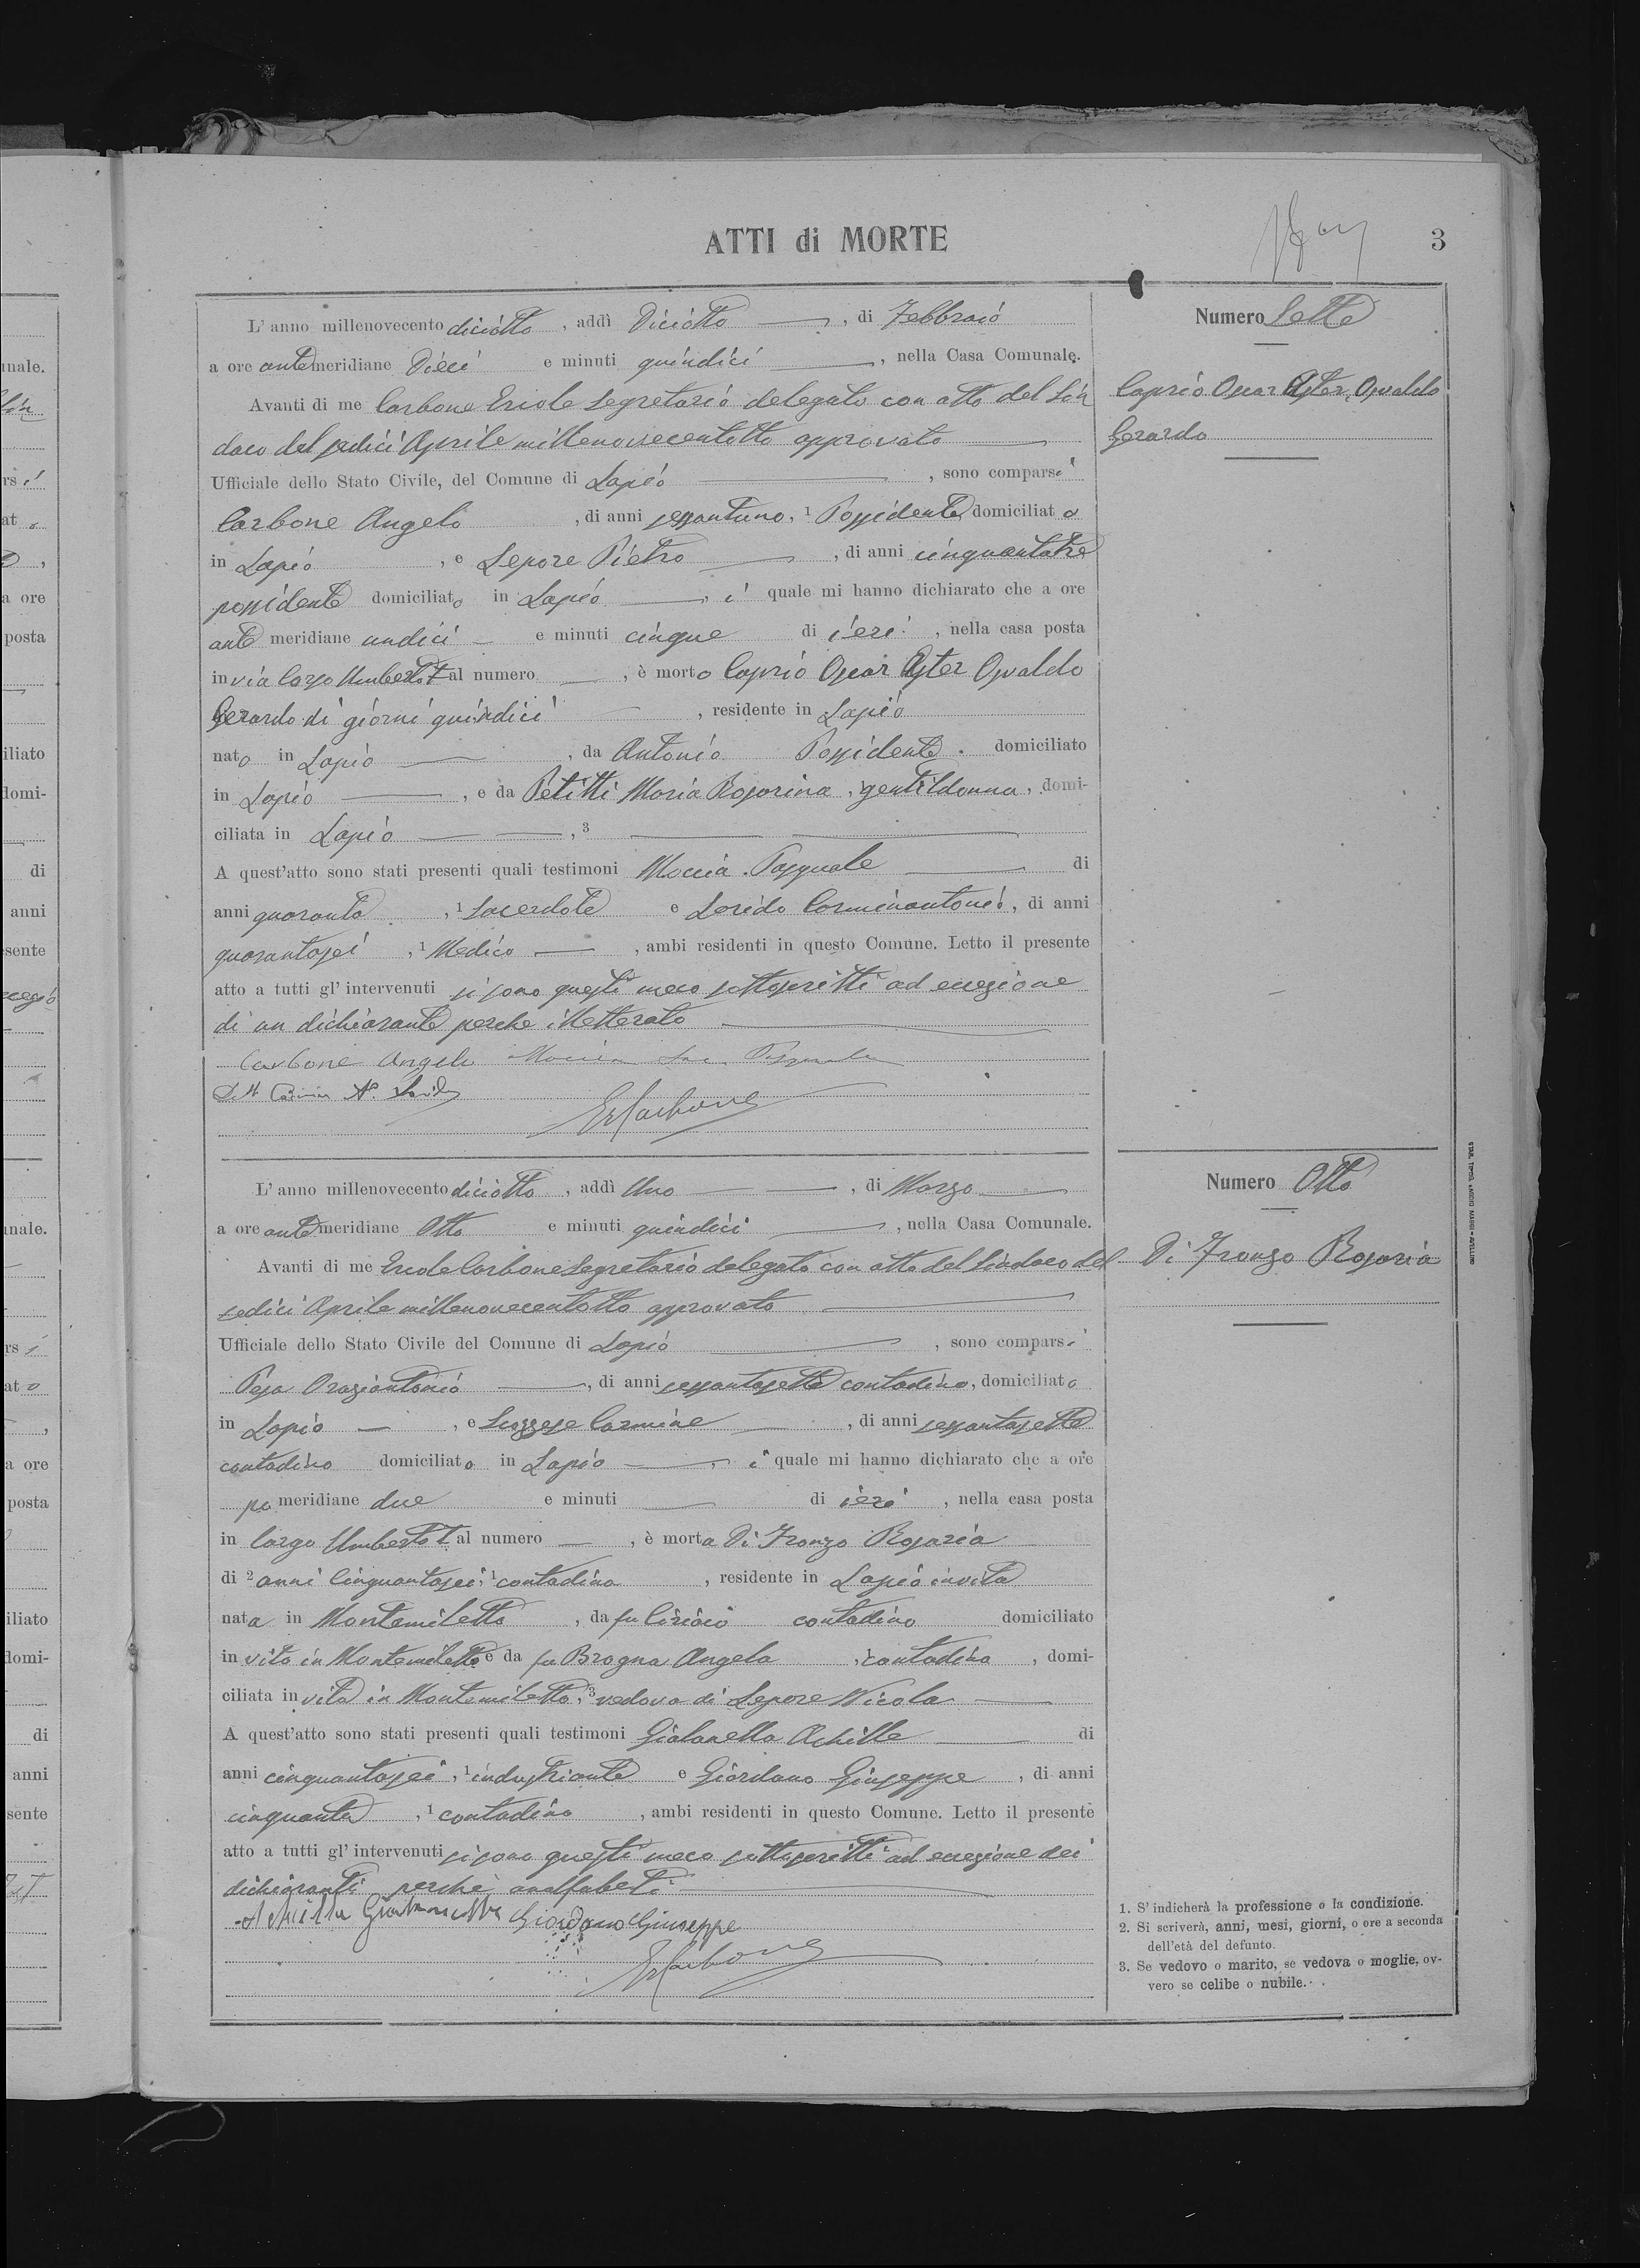 ATTI di MORTE
3
Numero Sette
Caprio Oscar Aster Osvaldo
Gerardo
L'anno millenovecento diciotto, addì Diciotto, di Febbraio
a ore antemeridiane Dieci e minuti quindici, nella Casa Comunale.
Avanti di me Carbone Ercole Segretario delegato con atto del Sin
daco del sedici Aprile millenovecentotto approvato
Ufficiale dello Stato Civile, del Comune di Lapio, sono comparsi
Carbone Angelo, di anni sessantuno, 1 Possidente domiciliato
in Lapio, e Lepore Pietro, di anni cinquantatre
possidente domiciliato in Lapio, i quale mi hanno dichiarato che a ore
ante meridiane undici e minuti cinque di ieri, nella casa posta
in via Corso Umberto I al numero, è morto Caprio Oscar Aster Osvaldo
Gerardo di giorni quindici, residente in Lapio
nato in Lapio, da Antonio Possidente. domiciliato
in Lapio, e da Petitti Maria Rosarina, gentildonna, domi-
ciliata in Lapio, 3
A quest'atto sono stati presenti quali testimoni Moccia Pasquale di
anni quaranta, 1 Sacerdote e Lorido Carminantonio, di anni
quarantasei, 1 Medico, ambi residenti in questo Comune. Letto il presente
atto a tutti gl'intervenuti si sono questi meco sottoscritti ad eccezione
di un dichiarante perche illetterato
Carbone Angelo Moccia Sac. Pasquale
ErCarbone
Numero Otto
Di Fronzo Rosaria
L'anno millenovecento diciotto, addì Uno, di Marzo
a ore antemeridiane Otto e minuti quindici, nella Casa Comunale.
Avanti di me Ercole Carbone Segretario delegato con atto del Sindaco del
sedici Aprile millenovecentotto approvato
Ufficiale dello Stato Civile del Comune di Lapio, sono comparsi
Pesa Oraziantonio, di anni sessantasette contadino, domiciliato
in Lapio, e Scozzese Carmine, di anni sessantasette
contadino domiciliato in Lapio, i quale mi hanno dichiarato che a ore
po meridiane due e minuti di ieri, nella casa posta
in largo Umberto I al numero, è morta Di Fronzo Rosaria
di 2 anni Cinquantasei, 1 contadina, residente in Lapio in vita
nata in Montemiletto, da fu Ciriaco contadino domiciliato
in vita in Montemiletto e da fu Brogna Angela, contadina, domi-
ciliata in vita in Montemiletto, 3 vedova di Lepore Nicola
A quest'atto sono stati presenti quali testimoni Gialanella Achille di
anni cinquantasei, 1 industriante e Giordano Giuseppe, di anni
cinquanta, 1 contadino, ambi residenti in questo Comune. Letto il presente
atto a tutti gl'intervenuti si sono questi meco sottoscritti ad eccezione dei
dichiaranti perchè analfabeti
Achille Gialanella Giordano Giuseppe
ErCarbone
1. S'indicherà la professione o la condizione.
2. Si scriverà, anni, mesi, giorni, o ore a seconda
dell'età del defunto.
3. Se vedovo o marito, se vedova o moglie, ov-
vero se celibe o nubile.